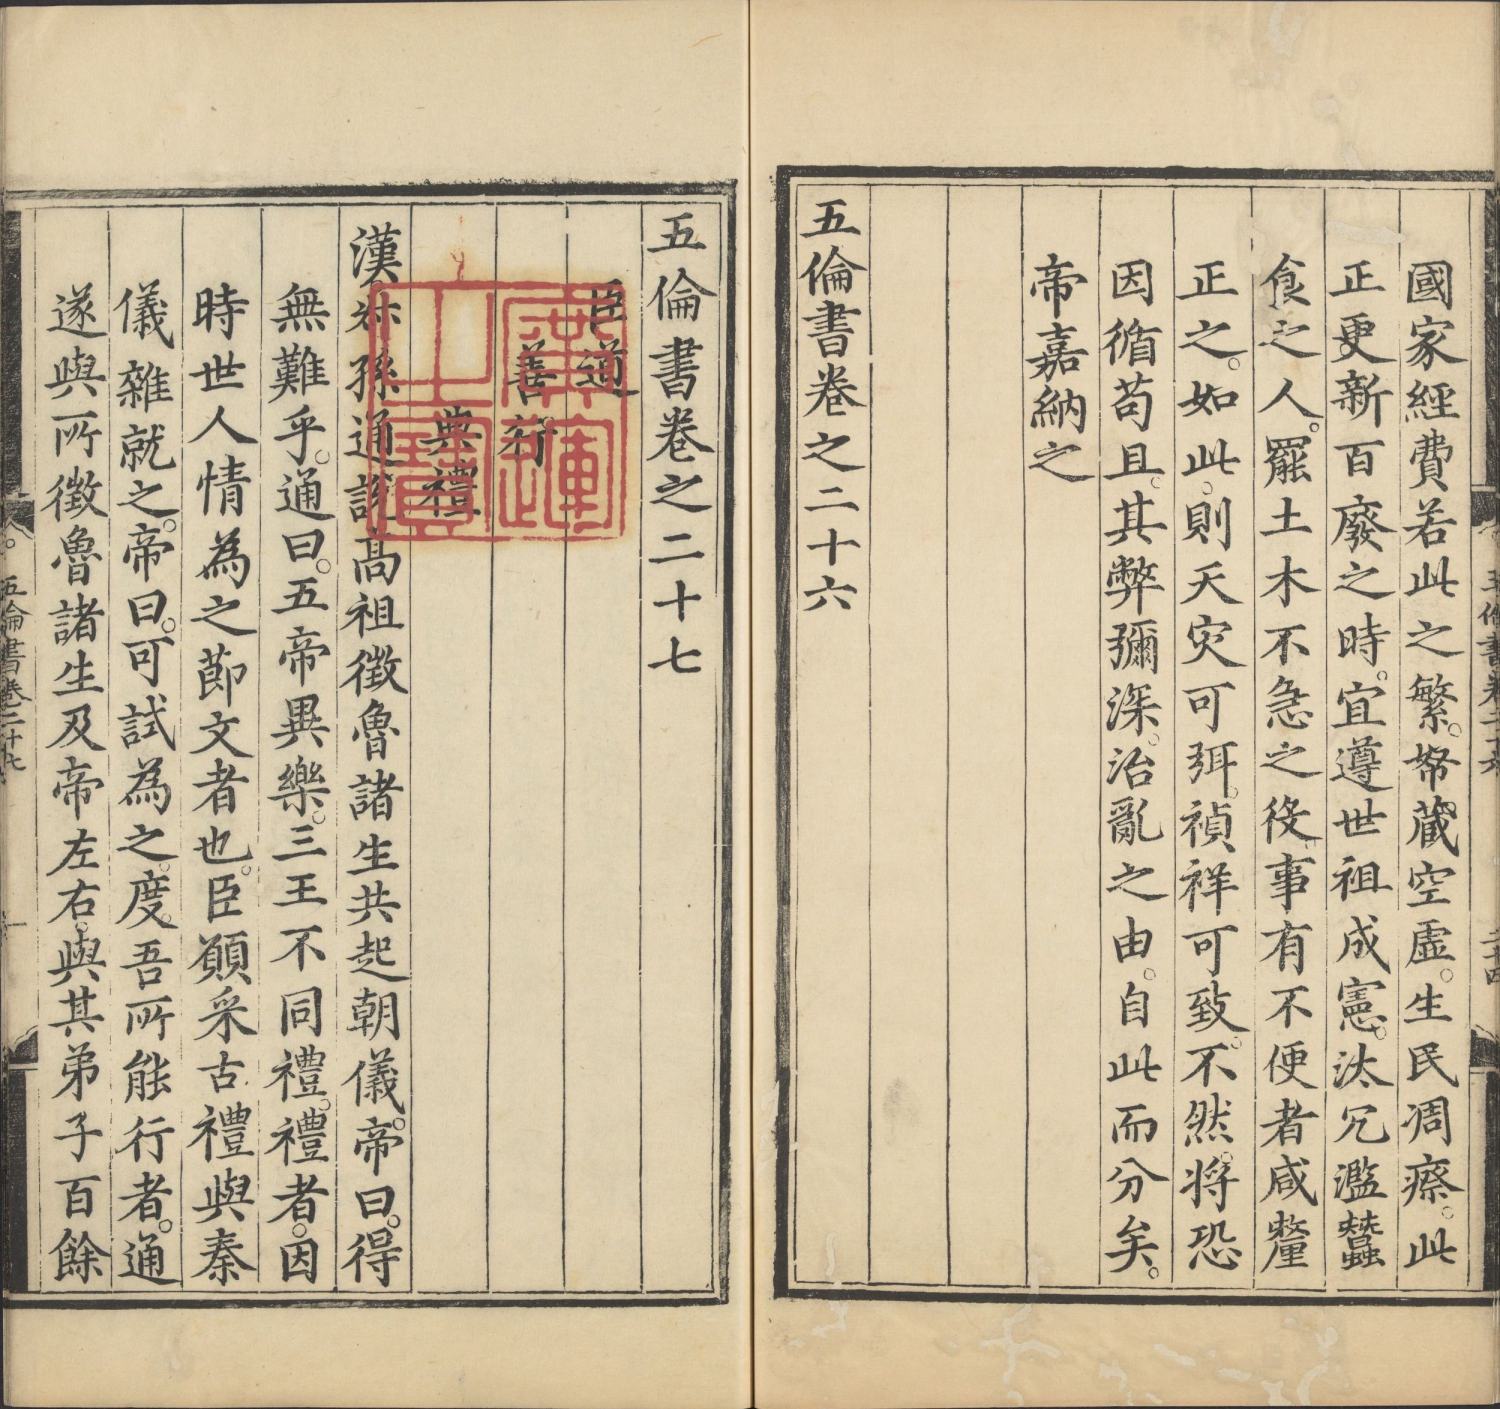 國家經費若此之繁。帑藏空虛。生民凋瘵。此
正更新百廢之時。宜遵世祖成憲。汰冗濫蠶
食之人。罷土木不急之役。事有不便者咸釐
正之。如此。則天灾可弭。禎祥可致。不然。將恐
因循苟且。其弊彌深。治亂之由。自此而分矣。
帝嘉納之
五倫書卷之二十六
五倫書卷之二十七
臣道
善行
典禮
漢叔孫通說高祖徵魯諸生共起朝儀。帝曰。得
無難乎。通曰。五帝異樂。三王不同禮。禮者。因
時世人情為之節文者也。臣願采古禮與秦
儀雜就之。帝曰。可試為之。度吾所能行者。通
遂與所徵魯諸生及帝左右。與其弟子百餘
五倫書卷二十七